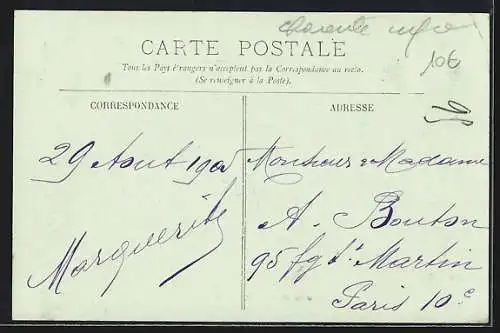 Charente Inf
CARTE POSTALE
10€
Tous les Pays étrangers n'acceptent pas la Correspondance au recto.
(Se renseigner à la Poste).
95
CORRESPONDANCE
ADRESSE
29 Aout
Marguerite
Monsieur & Madame
A. Bouton
95 fg St Martin
Paris 10e